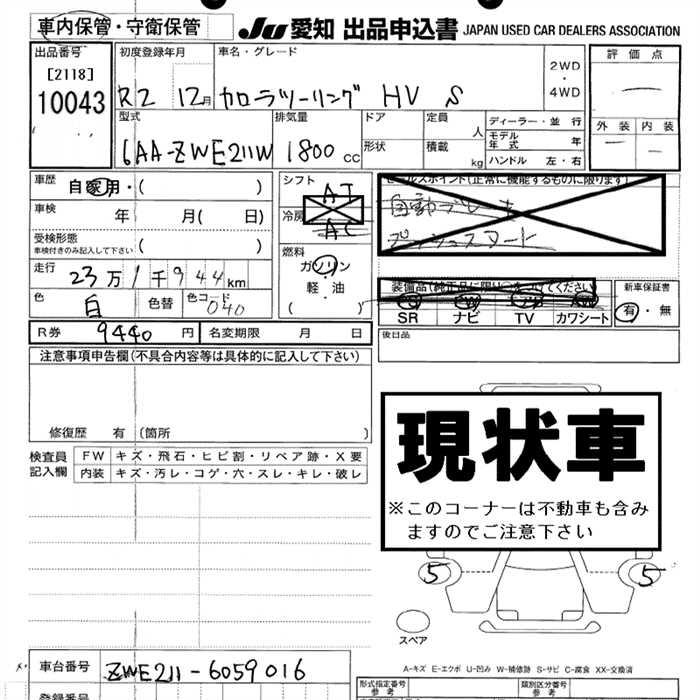 車内保管・守衛保管 JU 愛知 出品申込書 JAPAN USED CAR DEALERS ASSOCIATION
出品番号 初度登録年月 車名・グレード 評価点
[2118]
10043 R2 12月 カローラツーリング HV S 2WD・4WD
型式 排気量 ドア 定員 人 ディーラー・並行 外装 内装
6AA-ZWE211W 1800cc 形状 積載 kg モデル年式 年
ハンドル 左・右
車歴 自家用・( ) シフト AT セールスポイント(正常に機能するものに限ります)
車検 年 月(日) 冷房 AC 自動ブレーキ
受検形態 ( ) プッシュスタート
車検付きのみ記入して下さい
燃料
走行 23万1千944km ガソリン
軽・油
( )
装備品(純正品に限り○をつけてください) 新車保証書
色 白 色替 色コード 040 SR ナビ TV カワシート 有・無
R券 9440円 名変期限 月 日 後日品
注意事項申告欄(不具合内容等は具体的に記入して下さい)
修復歴 有 (箇所 )
検査員記入欄 FW キズ・飛石・ヒビ割・リペア跡・X要
内装 キズ・汚レ・コゲ・穴・スレ・キレ・破レ
現状車
※このコーナーは不動車も含み
ますのでご注意下さい
5 5
スペア
A-キズ E-エクボ U-凹み W-補修跡 S-サビ C-腐食 XX-交換済
車台番号 ZWE211-6059016
形式指定番号 参考 類別区分番号 参考
登録番号